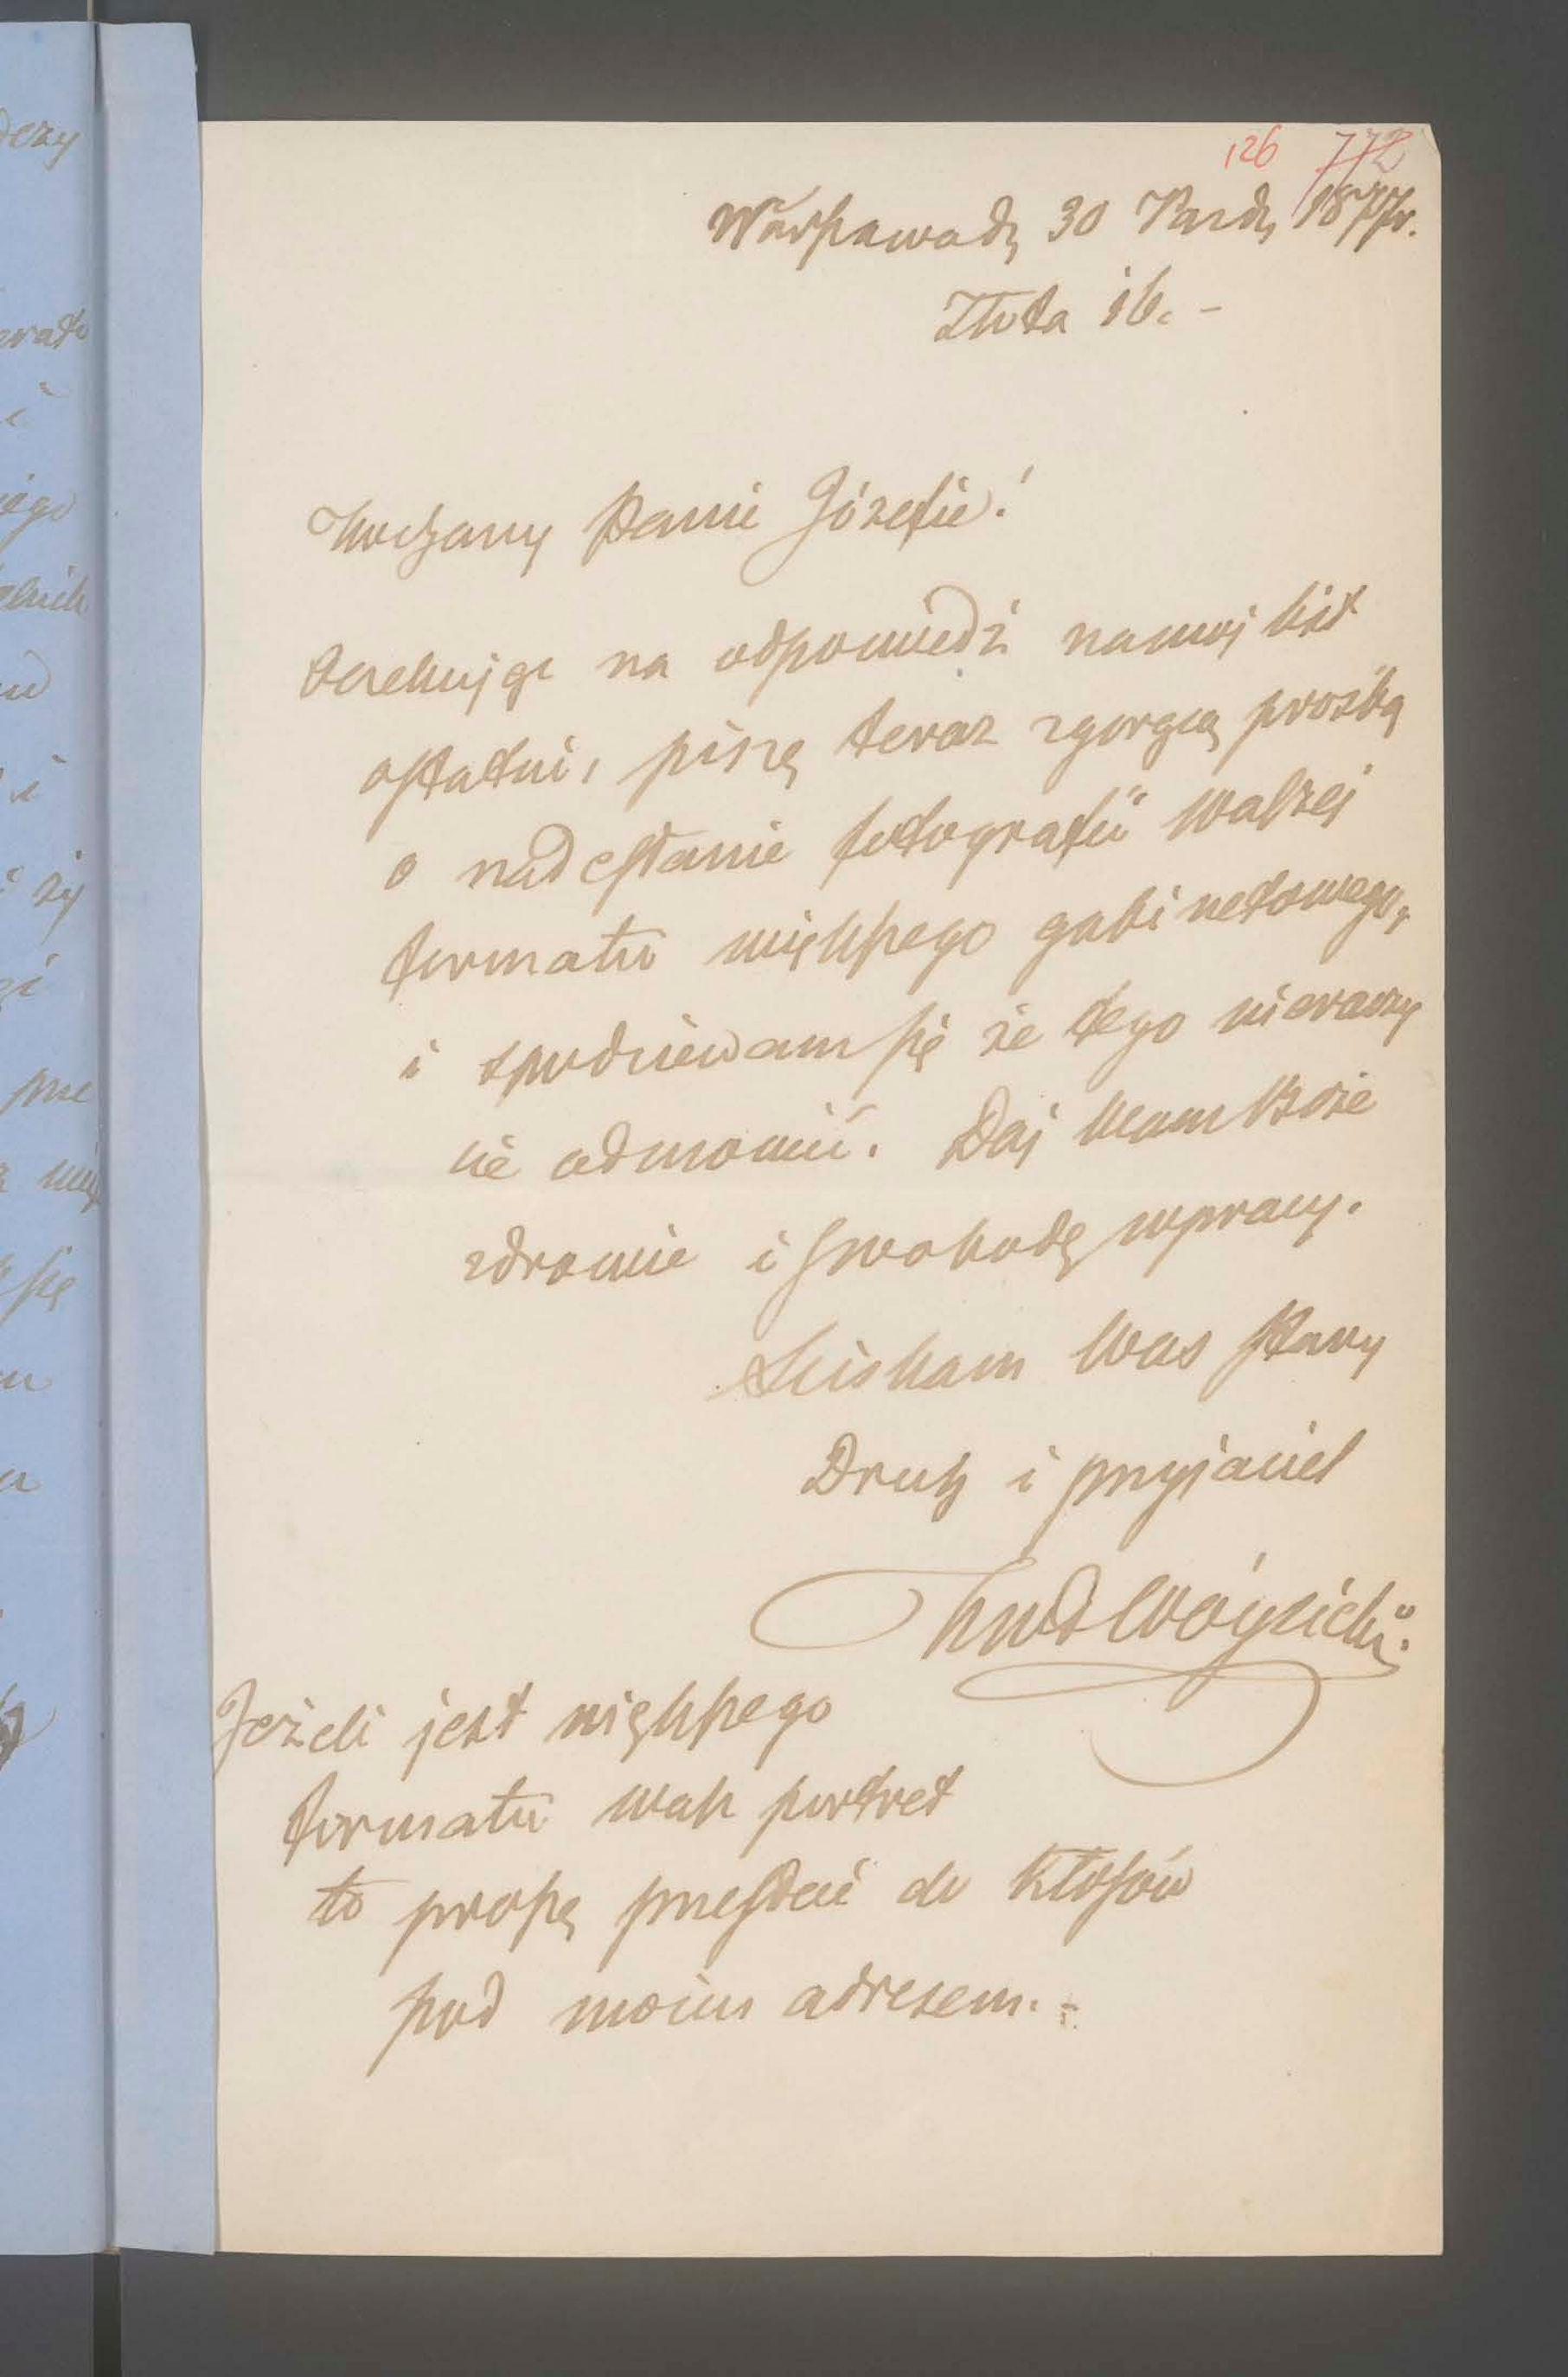 126 772
Warszawa d. 30 Paźdz. 1877 r.
Złota 16. -
Kochany Panie Józefie!
Oczekując na odpowiedź na mój list
ostatni, piszę teraz z gorącą prośbą
o nadesłanie fotografii Waszej
formatu większego gabinetowego,
i spodziewam się że tego nieraczy
cie odmówić. Daj Wam Boże
zdrowie i swobodę w pracy.
Ściskam Was stary
Druh i przyjaciel
KWł Wóycicki.
Jeżeli jest większego
formatu Wasz portret
to proszę przesłać do Kłosów
pod moim adresem. -